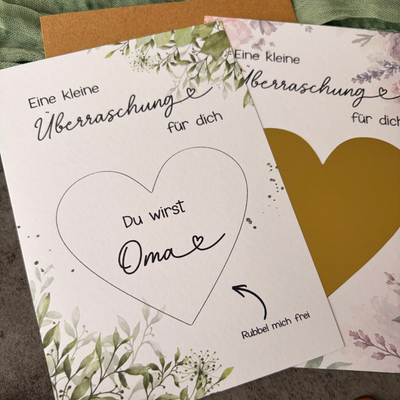 Eine kleine
Überraschung
für dich
Du wirst
Oma
Rubbel mich frei
Eine kleine
Überraschung
für dich